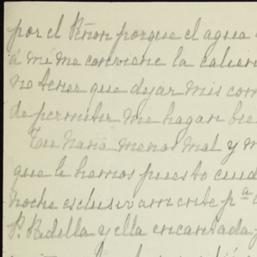 por el Riñon porque el agua
á mi me conviene la calien
no tener que dejar mis com
de permitir me hagan bie
menos mal y m
que la hemos puesto cuid
noche esclusivamente pª a
P. Redella y ella encantada,